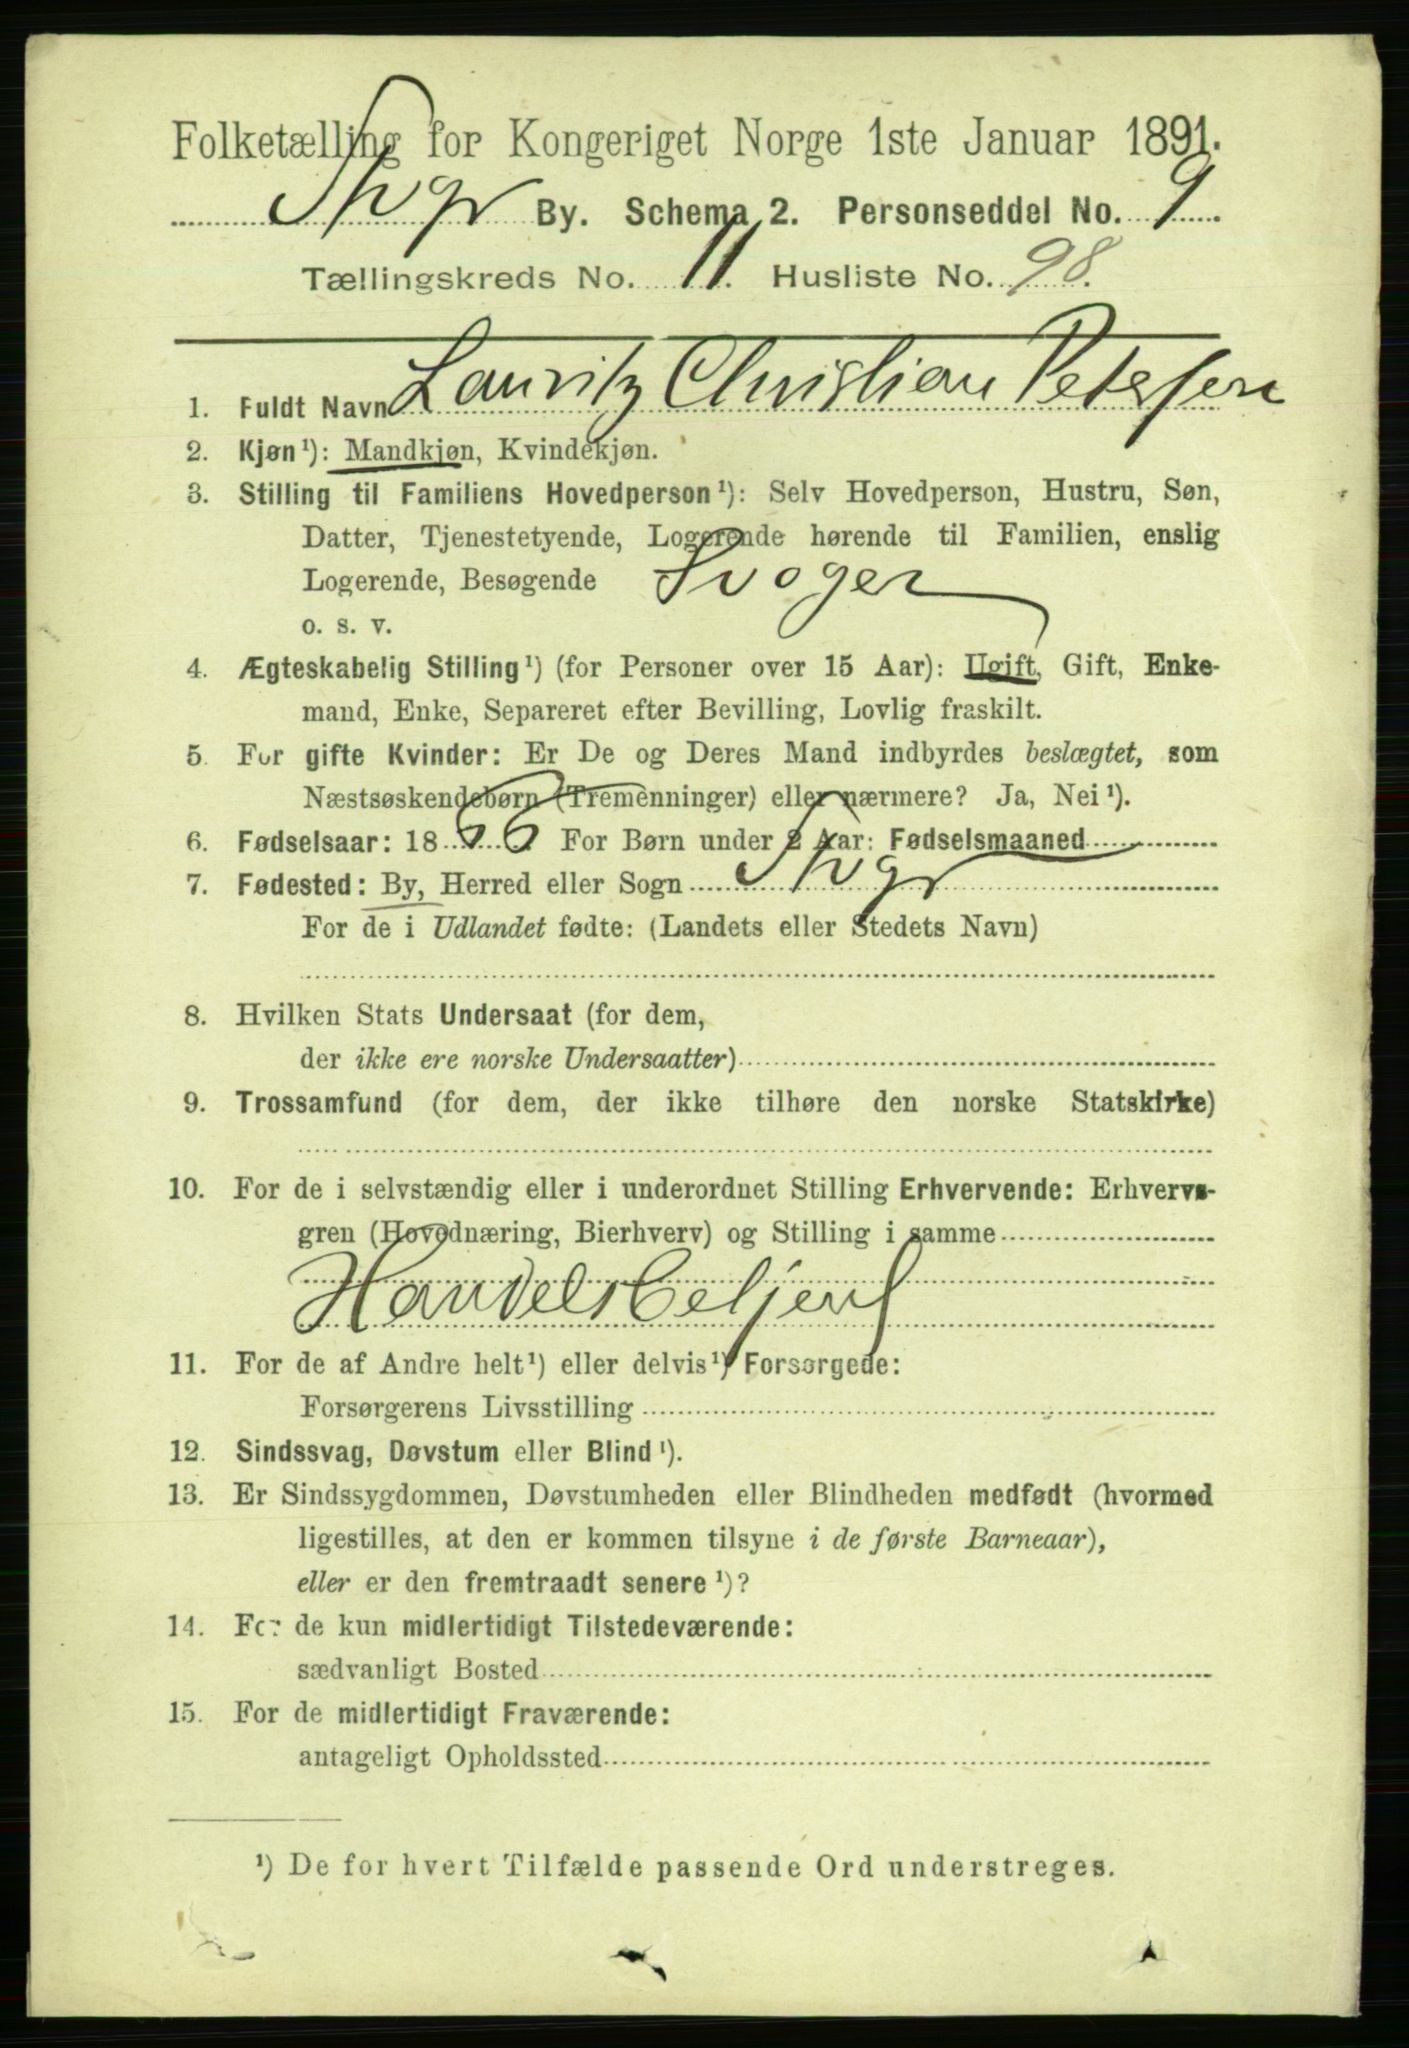 Folketælling for Kongeriget Norge 1ste Januar 1891.
By. Schema 2. Personseddel No. 9
Tællingskreds No. 11. Husliste No. 98.
1. Fuldt Navn Lauritz Christian Petersen
2. Kjøn¹): Mandkjøn, Kvindekjøn.
3. Stilling til Familiens Hovedperson¹): Selv Hovedperson, Hustru, Søn,
Datter, Tjenestetyende, Logerende hørende til Familien, enslig
Logerende, Besøgende Svoger
o. s. v.
4. Ægteskabelig Stilling¹) (for Personer over 15 Aar): Ugift, Gift, Enke-
mand, Enke, Separeret efter Bevilling, Lovlig fraskilt.
5. For gifte Kvinder: Er De og Deres Mand indbyrdes beslægtet, som
Næstsøskendebørn (Tremenninger) eller nærmere? Ja, Nei¹).
6. Fødselsaar: 1866 For Børn under 2 Aar: Fødselsmaaned
7. Fødested: By, Herred eller Sogn
For de i Udlandet fødte: (Landets eller Stedets Navn)
8. Hvilken Stats Undersaat (for dem,
der ikke ere norske Undersaatter)
9. Trossamfund (for dem, der ikke tilhøre den norske Statskirke)
10. For de i selvstændig eller i underordnet Stilling Erhvervende: Erhvervs-
gren (Hovednæring, Bierhverv) og Stilling i samme
Handelsbetjent
11. For de af Andre helt¹) eller delvis¹) Forsørgede:
Forsørgerens Livsstilling
12. Sindssvag, Døvstum eller Blind¹).
13. Er Sindssygdommen, Døvstumheden eller Blindheden medfødt (hvormed
ligestilles, at den er kommen tilsyne i de første Barneaar),
eller er den fremtraadt senere¹)?
14. For de kun midlertidigt Tilstedeværende:
sædvanligt Bosted
15. For de midlertidigt Fraværende:
antageligt Opholdssted
¹) De for hvert Tilfælde passende Ord understreges.